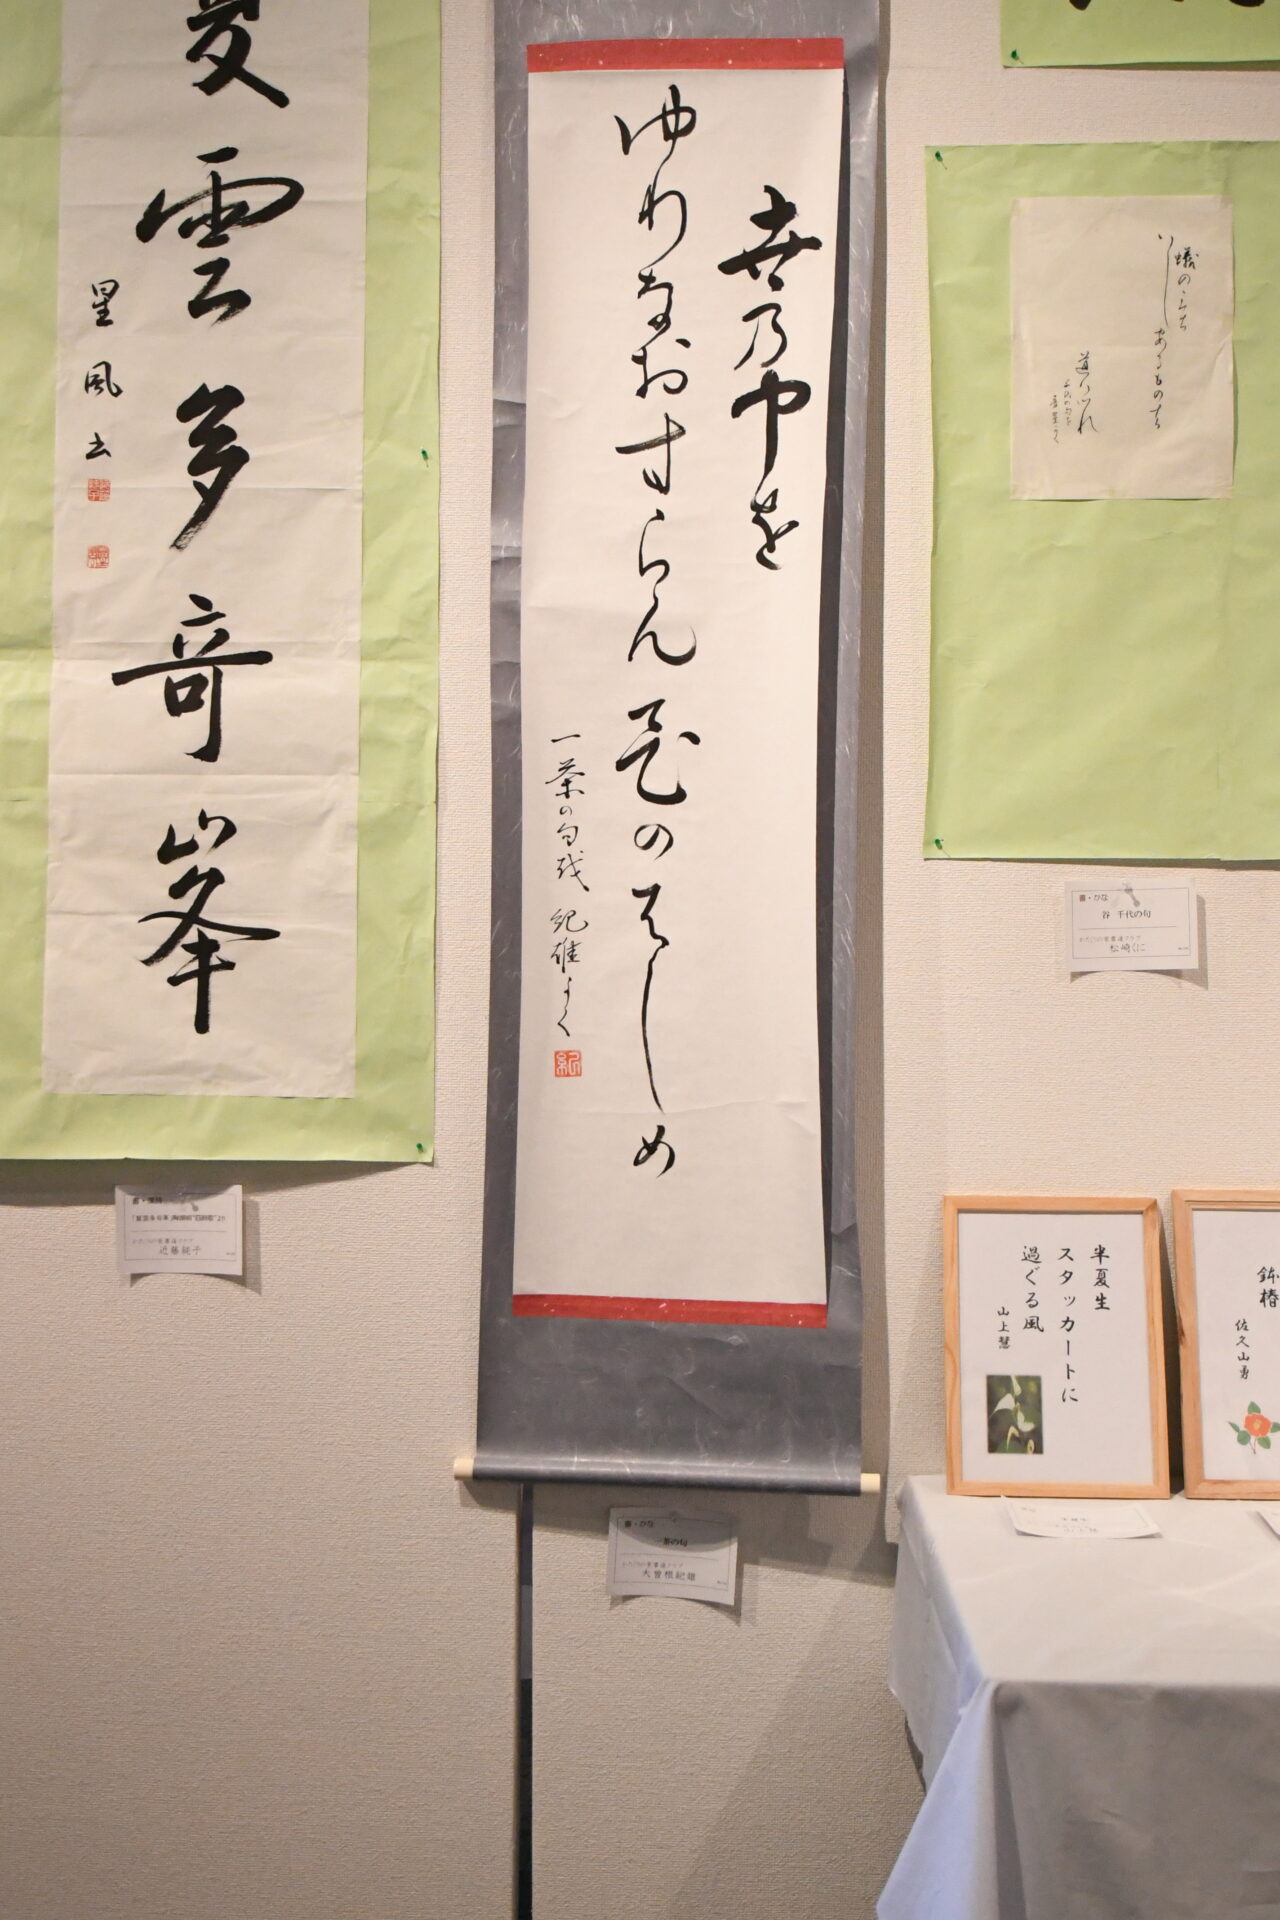 夏雲多奇峯
星風書
世乃中を
ゆりなおすらん花のはしめ
一茶の句越 紀雄かく
書・漢詩
「夏雲多奇峯」陶淵明"四時歌"より
近藤純子
書・かな
一茶の句
大曽根紀雄
書・かな
谷 千代の句
松崎くに
半夏生
スタッカートに
過ぐる風
山上慧
鉢椿
佐久山勇